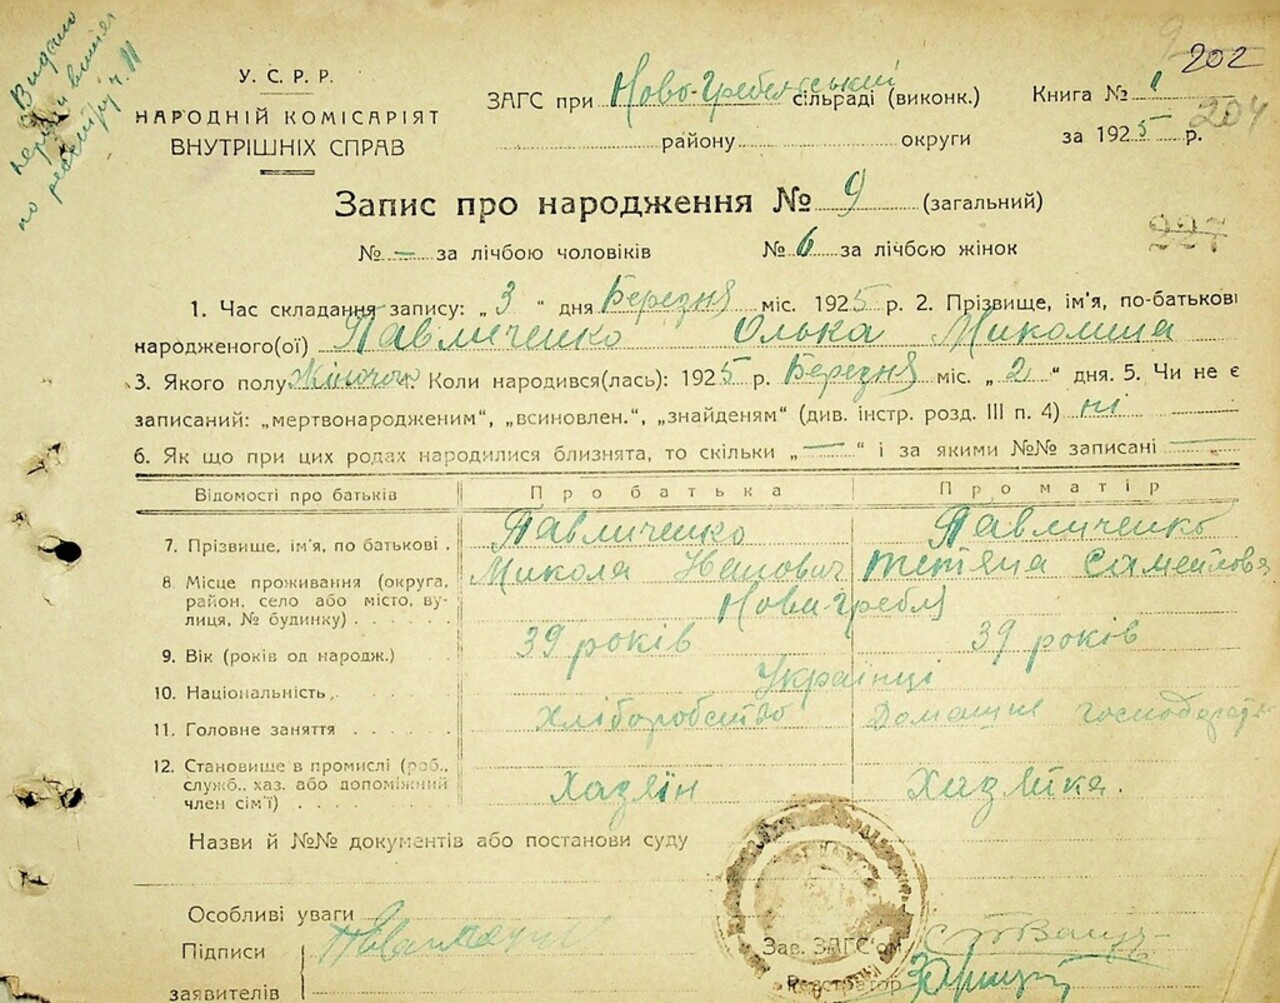 202
204
227
Видано
по реєстру ч. 11
У. С. Р. Р.
НАРОДНІЙ КОМІСАРІЯТ
ВНУТРІШНІХ СПРАВ
ЗАГС при Ново-Гребельський сільраді (виконк.) Книга № 1
району округи за 1925 р.
Запис про народження № 9 (загальний)
№ — за лічбою чоловіків № 6 за лічбою жінок
1. Час складання запису: „3“ дня Березня міс. 1925 р. 2. Прізвище, ім'я, по-батькові
народженого(ої) Павличенко Олька Миколина
3. Якого полу Жіночого. Коли народився(лась): 1925 р. Березня міс. „2“ дня. 5. Чи не є
записаний: „мертвонародженим“, „всиновлен.“, „знайденям“ (див. інстр. розд. III п. 4) ні
6. Як що при цих родах народилися близнята, то скільки „—“ і за якими №№ записані —
Відомості про батьків Про батька Про матір
7. Прізвище, ім'я, по батькові . Павличенко Павличенко
Микола Іванович Тетяна Самейлова
8 Місце проживання (округа,
район, село або місто, ву-
лиця, № будинку) . . . . . . Нови-Гребля
9. Вік (років од народж.) 39 років 39 років
10. Національність . . . . . Українці
11. Головне заняття . . . . . . Хліборобство Домашнє
12. Становище в промислі (роб.,
служб., хаз. або допоміжний
член сім'ї) . . . . . . . . Хазяїн Хазяйка.
Назви й №№ документів або постанови суду
Особливі уваги
Підписи
заявителів
Зав. ЗАГС'ом
Реєстратор